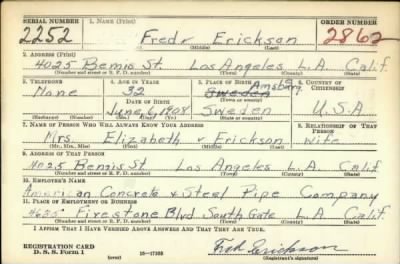 SERIAL NUMBER 1. NAME (Print) ORDER NUMBER
2252 Fred r Erickson 2862
(First) (Middle) (Last)
2. ADDRESS (Print)
4025 Bemis St. Los Angeles L.A. Calif.
(Number and street or R. F. D. number) (Town) (County) (State)
3. TELEPHONE 4. AGE IN YEARS 5. PLACE OF BIRTH 6. COUNTRY OF CITIZENSHIP
None 32 Sweden
DATE OF BIRTH (Town or county)
June 6, 1908 Sweden U.S.A
(Exchange) (Number) (Mo.) (Day) (Yr.) (State or country)
7. NAME OF PERSON WHO WILL ALWAYS KNOW YOUR ADDRESS 8. RELATIONSHIP OF THAT PERSON
Mrs. Elizabeth r Erickson Wife
(Mr., Mrs., Miss) (First) (Middle) (Last)
9. ADDRESS OF THAT PERSON
4025 Bemis St Los Angeles L.A. Calif.
(Number and street or R. F. D. number) (Town) (County) (State)
10. EMPLOYER'S NAME
American Concrete & Steel Pipe Company
11. PLACE OF EMPLOYMENT OR BUSINESS
4635 Firestone Blvd. South Gate L.A. Calif.
(Number and street or R. F. D. number) (Town) (County) (State)
I AFFIRM THAT I HAVE VERIFIED ABOVE ANSWERS AND THAT THEY ARE TRUE.
REGISTRATION CARD
D. S. S. Form 1 (over) 16—17105 Fred Erickson
(Registrant's signature)